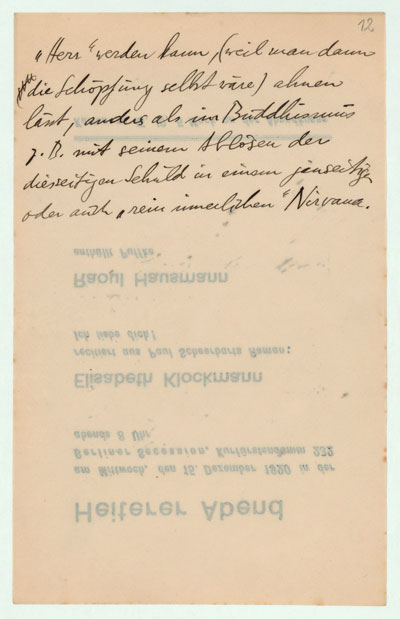 12
„Herr“ werden kann, (weil man dann
die Schöpfung selbst wäre) ahnen
läßt, anders als im Buddhismus
z. B. mit seinem Ablösen der
diesseitigen Schuld in einem jenseitigen
oder auch „rein innerlichen“ Nirvana.
Heiterer Abend
am Mittwoch, den 15. Dezember 1920 in der
Berliner Secession, Kurfürstendamm 232
abends 8 Uhr
Elisabeth Klockmann
recitiert aus Paul Scheerbarts Roman:
Ich liebe dich!
Raoul Hausmann
enthüllt Puffke